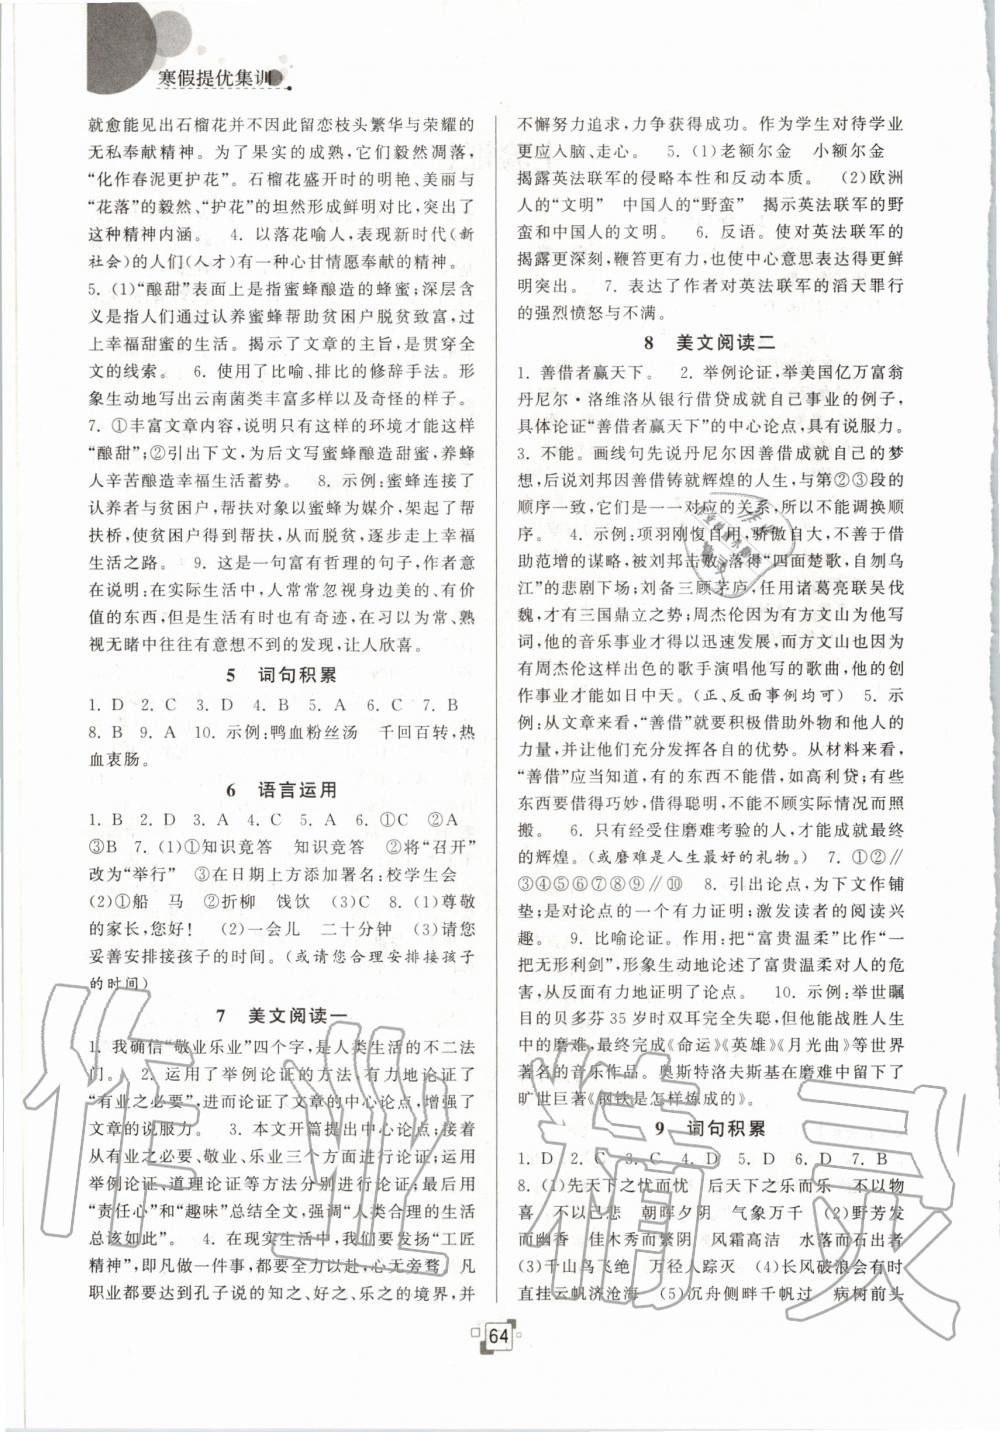 寒假提优集训
就愈能见出石榴花并不因此留恋枝头繁华与荣耀的
无私奉献精神。为了果实的成熟,它们毅然凋落,
“化作春泥更护花”。石榴花盛开时的明艳、美丽与
“花落”的毅然、“护花”的坦然形成鲜明对比,突出了
这种精神内涵。 4. 以落花喻人,表现新时代(新
社会)的人们(人才)有一种心甘情愿奉献的精神。
5. (1)“酿甜”表面上是指蜜蜂酿造的蜂蜜;深层含
义是指人们通过认养蜜蜂帮助贫困户脱贫致富,过
上幸福甜蜜的生活。揭示了文章的主旨,是贯穿全文
的线索。 6. 使用了比喻、排比的修辞手法。形
象生动地写出云南菌类丰富多样以及奇怪的样子。
7. ①丰富文章内容,说明只有这样的环境才能这样
“酿甜”;②引出下文,为后文写蜜蜂酿造甜蜜、养蜂
人辛苦酿造幸福生活蓄势。 8. 示例:蜜蜂连接了
认养者与贫困户,帮扶对象以蜜蜂为媒介,架起了帮
扶桥,使贫困户得到帮扶,从而脱贫,逐步走上幸福
生活之路。 9. 这是一句富有哲理的句子,作者意
在说明:在实际生活中,人常常忽视身边美的、有价
值的东西,但是有时也会在不经意中,在习以为常、熟
视无睹中往往有意想不到的发现,让人欣喜。
5 词句积累
1. D 2. C 3. D 4. B 5. A 6. C 7. B
8. B 9. A 10. 示例:鸭血粉丝汤 千回百转,热
血衷肠。
6 语言运用
1. B 2. D 3. A 4. C 5. A 6. ①C ②A
③B 7. (1)①知识竞答 知识竞赛 ②将“召开”
改为“举行” ③在日期上方添加署名:校学生会
(2)①船 马 ②折柳 饯饮 (3)C 8. (1)尊敬
的家长,您好! (2)一会儿 二十分钟 (3)请您
妥善安排接孩子的时间。(或请您合理安排接孩子
的时间)
7 美文阅读一
1. 我确信“敬业乐业”四个字,是人类生活的不二法
门。 2. 运用了举例论证的方法,有力地论证了
“有业之必要”,进而论证了文章的中心论点,增强了
文章的说服力。 3. 本文开篇提出中心论点;接着
从有业之必要、敬业、乐业三个方面进行论证;运用
举例论证、道理论证等方法分别进行论证;最后用
“责任心”和“趣味”总结全文,强调“人类合理的生活
总该如此”。 4. 在现实生活中,我们要发扬“工匠
精神”,即凡做一件事,都要全力以赴,心无旁骛。凡
职业都要达到孔子说的知之、好之、乐之的境界,并
不懈努力追求,力争获得成功。作为学生对待学业
更应入脑、走心。 5. (1)老额尔金 小额尔金
揭露英法联军的侵略本性和反动本质。 (2)欧洲
人的“文明” 中国人的“野蛮” 揭示英法联军的野
蛮和中国人的文明。 6. 反语。使对英法联军的
揭露更深刻,鞭笞更有力,也使中心意思表达得更鲜
明突出。 7. 表达了作者对英法联军的滔天罪行
的强烈愤怒与不满。
8 美文阅读二
1. 善借者赢天下。 2. 举例论证,举美国亿万富翁
丹尼尔·洛维洛从银行借贷成就自己事业的例子,
具体论证“善借者赢天下”的中心论点,具有说服力。
3. 不能。画线句先说丹尼尔因善借成就自己的梦
想,后说刘邦因善借铸就辉煌的人生,与第②③段的
顺序一致,它们是一一对应的关系,所以不能调换顺
序。 4. 示例:项羽刚愎自用,骄傲自大,不善于借
助范增的谋略,被刘邦击败,落得“四面楚歌,自刎乌
江”的悲剧下场;刘备三顾茅庐,任用诸葛亮联吴伐
魏,才有三国鼎立之势;周杰伦因为有方文山为他写
词,他的音乐事业才得以迅速发展,而方文山也因为
有周杰伦这样出色的歌手演唱他写的歌曲,他的创
作事业才能如日中天。(正、反面事例均可) 5. 示
例:从文章来看,“善借”就要积极借助外物和他人的
力量,并让他们充分发挥各自的优势。从材料来看,
“善借”应当知道,有的东西不能借,如高利贷;有些
东西要借得巧妙,借得聪明,不能不顾实际情况和效
果。 6. 只有经受住磨难考验的人,才能成就最终
的辉煌。(或磨难是人生最好的礼物。) 7. ①②∥
③④⑤⑥⑦⑧⑨∥⑩ 8. 引出论点,为下文作铺
垫;是对论点的一个有力证明;激发读者的阅读兴
趣。 9. 比喻论证。作用:把“富贵温柔”比作“一
把无形利剑”,形象生动地论述了富贵温柔对人生的
危害,从反面有力地证明了论点。 10. 示例:举世瞩
目的贝多芬 35 岁时双耳完全失聪,但他战胜人生
中的磨难,最终完成《命运》《英雄》《月光曲》等世界
著名的音乐作品。奥斯特洛夫斯基在磨难中留下了
旷世巨著《钢铁是怎样炼成的》。
9 词句积累
1. D 2. C 3. C 4. B 5. D 6. D 7. B
8. (1)先天下之忧而忧 后天下之乐而乐 不以物
喜 不以己悲 朝晖夕阴 气象万千 (2)野芳发
而幽香 佳木秀而繁阴 风霜高洁 水落而石出者
(3)千山鸟飞绝 万径人踪灭 (4)长风破浪会有时
直挂云帆济沧海 (5)沉舟侧畔千帆过 病树前头
64
作业精灵